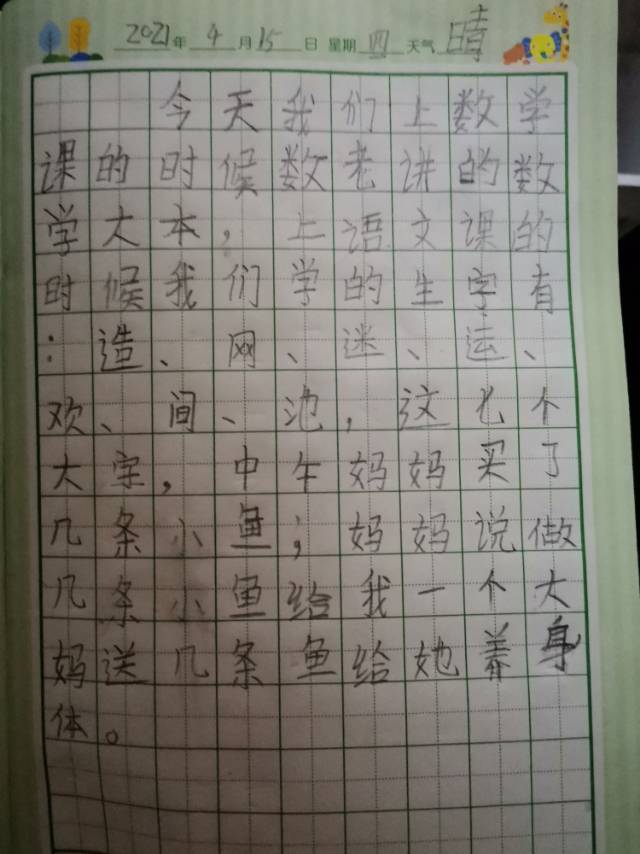 2021年4月15日 星期四 天气晴
今天我们上数学
课的时候数老讲的数
学大本，上语文课的
时候我们学的生字有
：造、网、迷、运、
欢、间、池，这七个
大字，中午妈妈买了
几条小鱼；妈妈说做
几条小鱼给我一个大
妈送几条鱼给她养身
体。